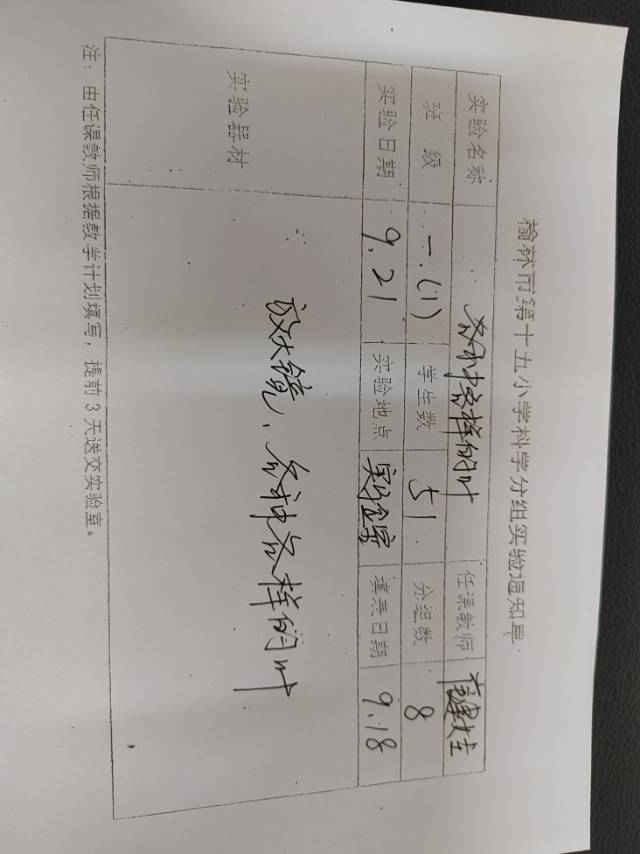 榆林市第十五小学科学分组实验通知单
实验名称 各种各样的叶 任课教师
班级 一.(1) 学生数 51 分组数 8
实验日期 9.21 实验地点 实验室 填表日期 9.18
实验器材 放大镜、各种各样的叶
注：由任课教师根据教学计划填写，提前3天送交实验室。